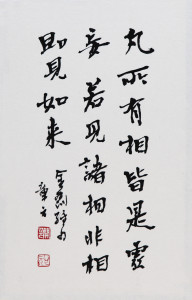 凡所有相皆是虚
妄若见諸相非相
即见如来
金剛經句